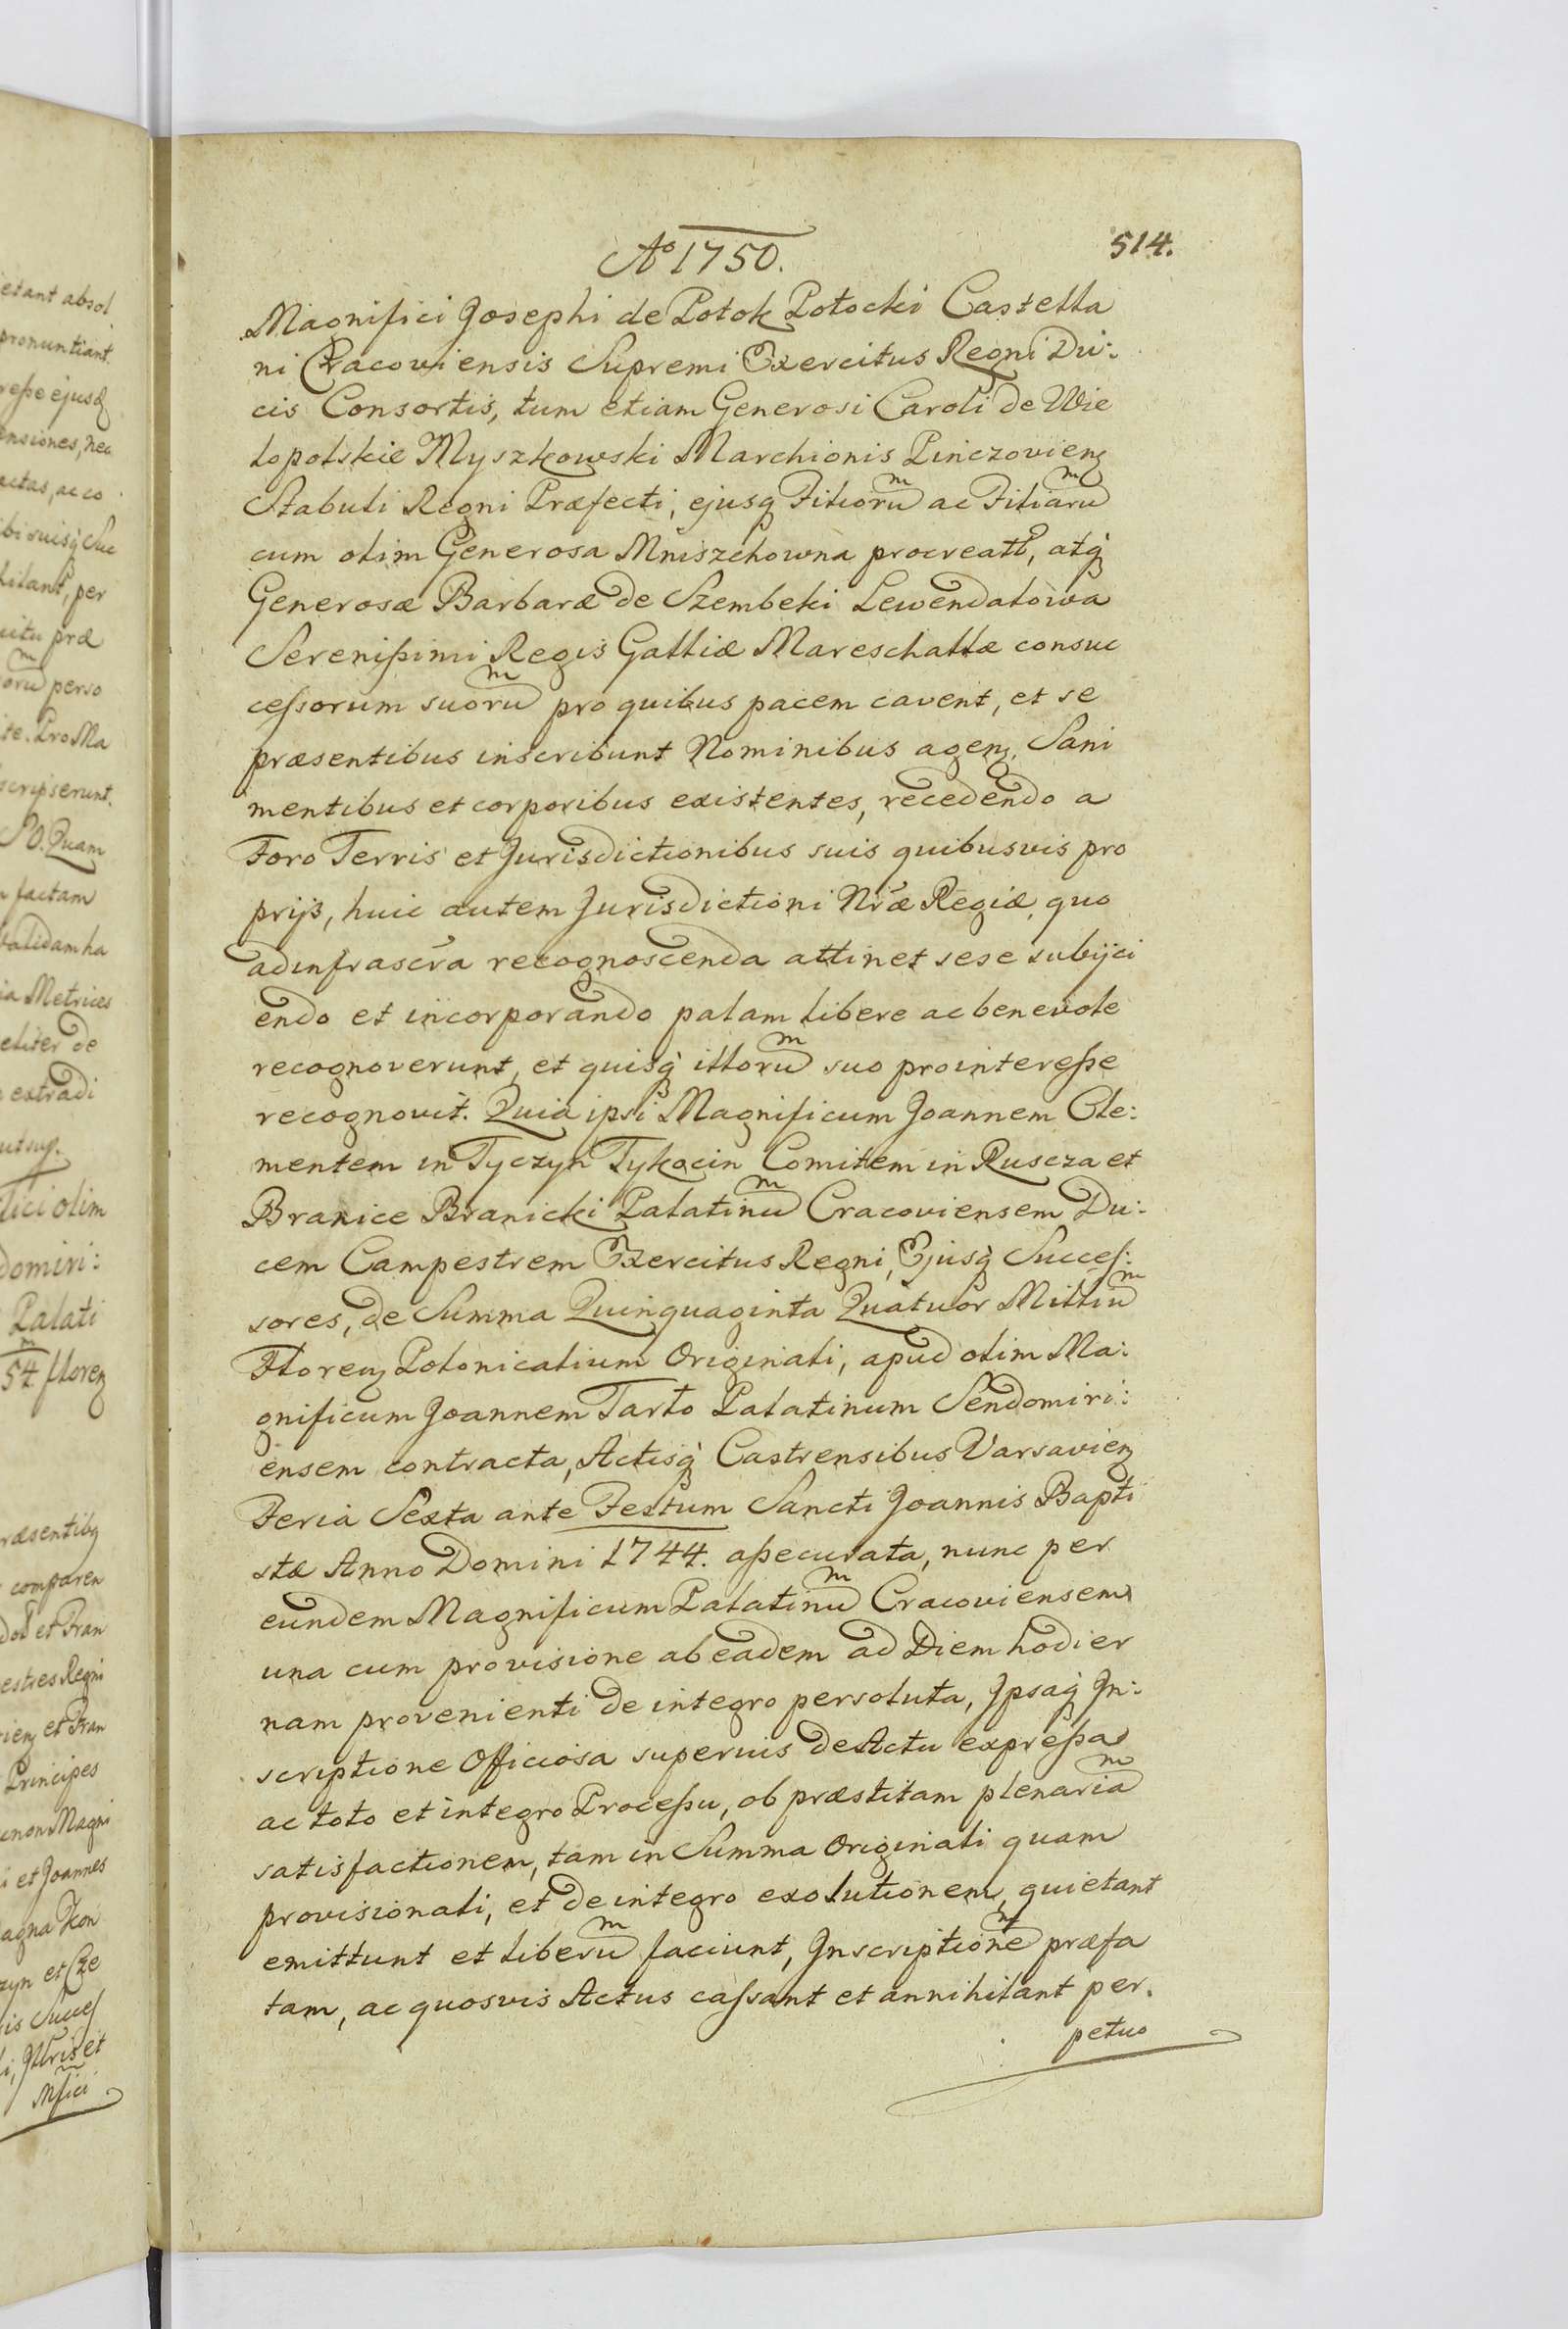 Ao 1750.
514.
Magnifici Josephi de Potok Potocki Castella
ni Cracoviensis Supremi Exercitus Regni Du:
cis Consortis, tum etiam Generosi Caroli de Wie
lopolskie Myszkowski Marchionis Pinczovienz
Stabuli Regni Præfecti, ejusq Filiorum̃ ac Filiarum̃
cum olim Generosa Mniszchowna procreatt, atq
Generosæ Barbaræ de Szembeki Lewendalowa
Serenißimi Regis Galliæ Mareschallæ consuc
ceſsorum suorum̃ pro quibus pacem cavent, et se
præsentibus inscribunt Nominibus agenz. Sani
mentibus et corporibus existentes, recedendo a
Foro Terris et Jurisdictionibus suis quibusvis pro
prijs, huic autem Jurisdictioni Nr̃æ Regiæ, quo
adinfrascr̃a recognoscenda attinet sese subijci
endo et incorporando palam libere ac benevole
recognoverunt, et quisq illorum̃ suo prointereſse
recognovit. Quia ipsi Magnificum Joannem Cle:
mentem in Tyczyn Tykocin Comitem in Ruscza et
Branice Branicki Palatinum̃ Cracoviensem Du:
cem Campestrem Exercitus Regni, Ejusq Succeſ:
sores, de Summa Quinquaginta Quatuor Millium̃
Florenz Polonicalium Originali, apud olim Ma:
gnificum Joannem Tarło Palatinum Sendomiri:
ensem contracta, Actisq Castrensibus Varsavienz
Feria Sexta ante Festum Sancti Joannis Bapti
stæ Anno Domini 1744. aßecurata, nunc per
eundem Magnificum Palatinum̃ Cracoviensem
una cum provisione ab eadem ad Diem hodier
nam provenienti de integro persoluta, Ipsaq In:
scriptione Officiosa superius de Actu expreßa
ac toto et integro Proceßu, ob præstitam plenariam̃
satisfactionem, tam in Summa Originali quam
provisionali, et de integro exolutionem, quietant
emittunt et liberum̃ faciunt, Inscriptionem̃ præfa
tam, ac quosvis Actus caſsant et annihilant per.
petuo